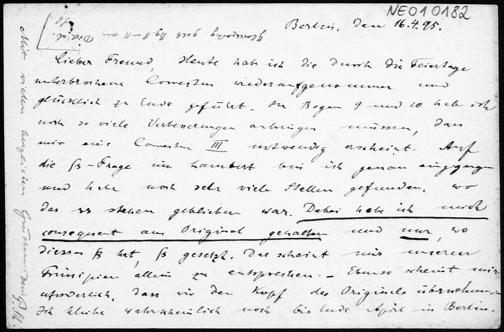 NE010182
Berlin, den 16.4.95.
Lieber Freund, Heute hab ich die durch die Feiertage
unterbrochene Correctur wiederaufgenommen und
glücklich zu Ende geführt. In Bogen 9 und 10 habe ich
noch so viele Verbesserungen anbringen müssen, dass
mir eine Correctur III notwendig erscheint. Auf
die ß-Frage im Lambert bin ich genau eingegangen
und habe noch sehr viele Stellen gefunden, wo
das ss stehen geblieben war. Dabei habe ich mich
consequent am Original gehalten und nur, wo
dieses ß hat, ß gesetzt. Das scheint mir unseren
Principien allein zu entsprechen. – Ebenso scheint mir
erforderlich, dass wir den Kopf des Originals übernehmen
Ich bleibe wahrscheinlich noch bis Ende April in Berlin.
Mit vielen herzlichen Grüssen